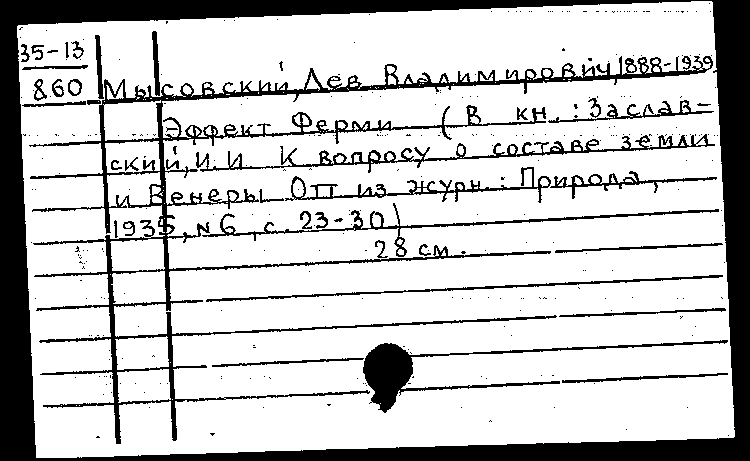 35-13
860 Мысовский, Лев Владимирович, 1888-1939
Эффект Ферми (В кн.: Заслав-
ский, И. И. К вопросу о составе земли
и Венеры Отт из журн.: Природа,
1935, №6, с. 23-30)
28 см.